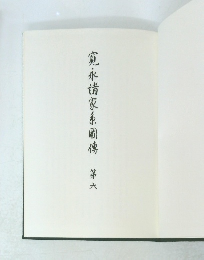 寛永諸家系圖傳 第六